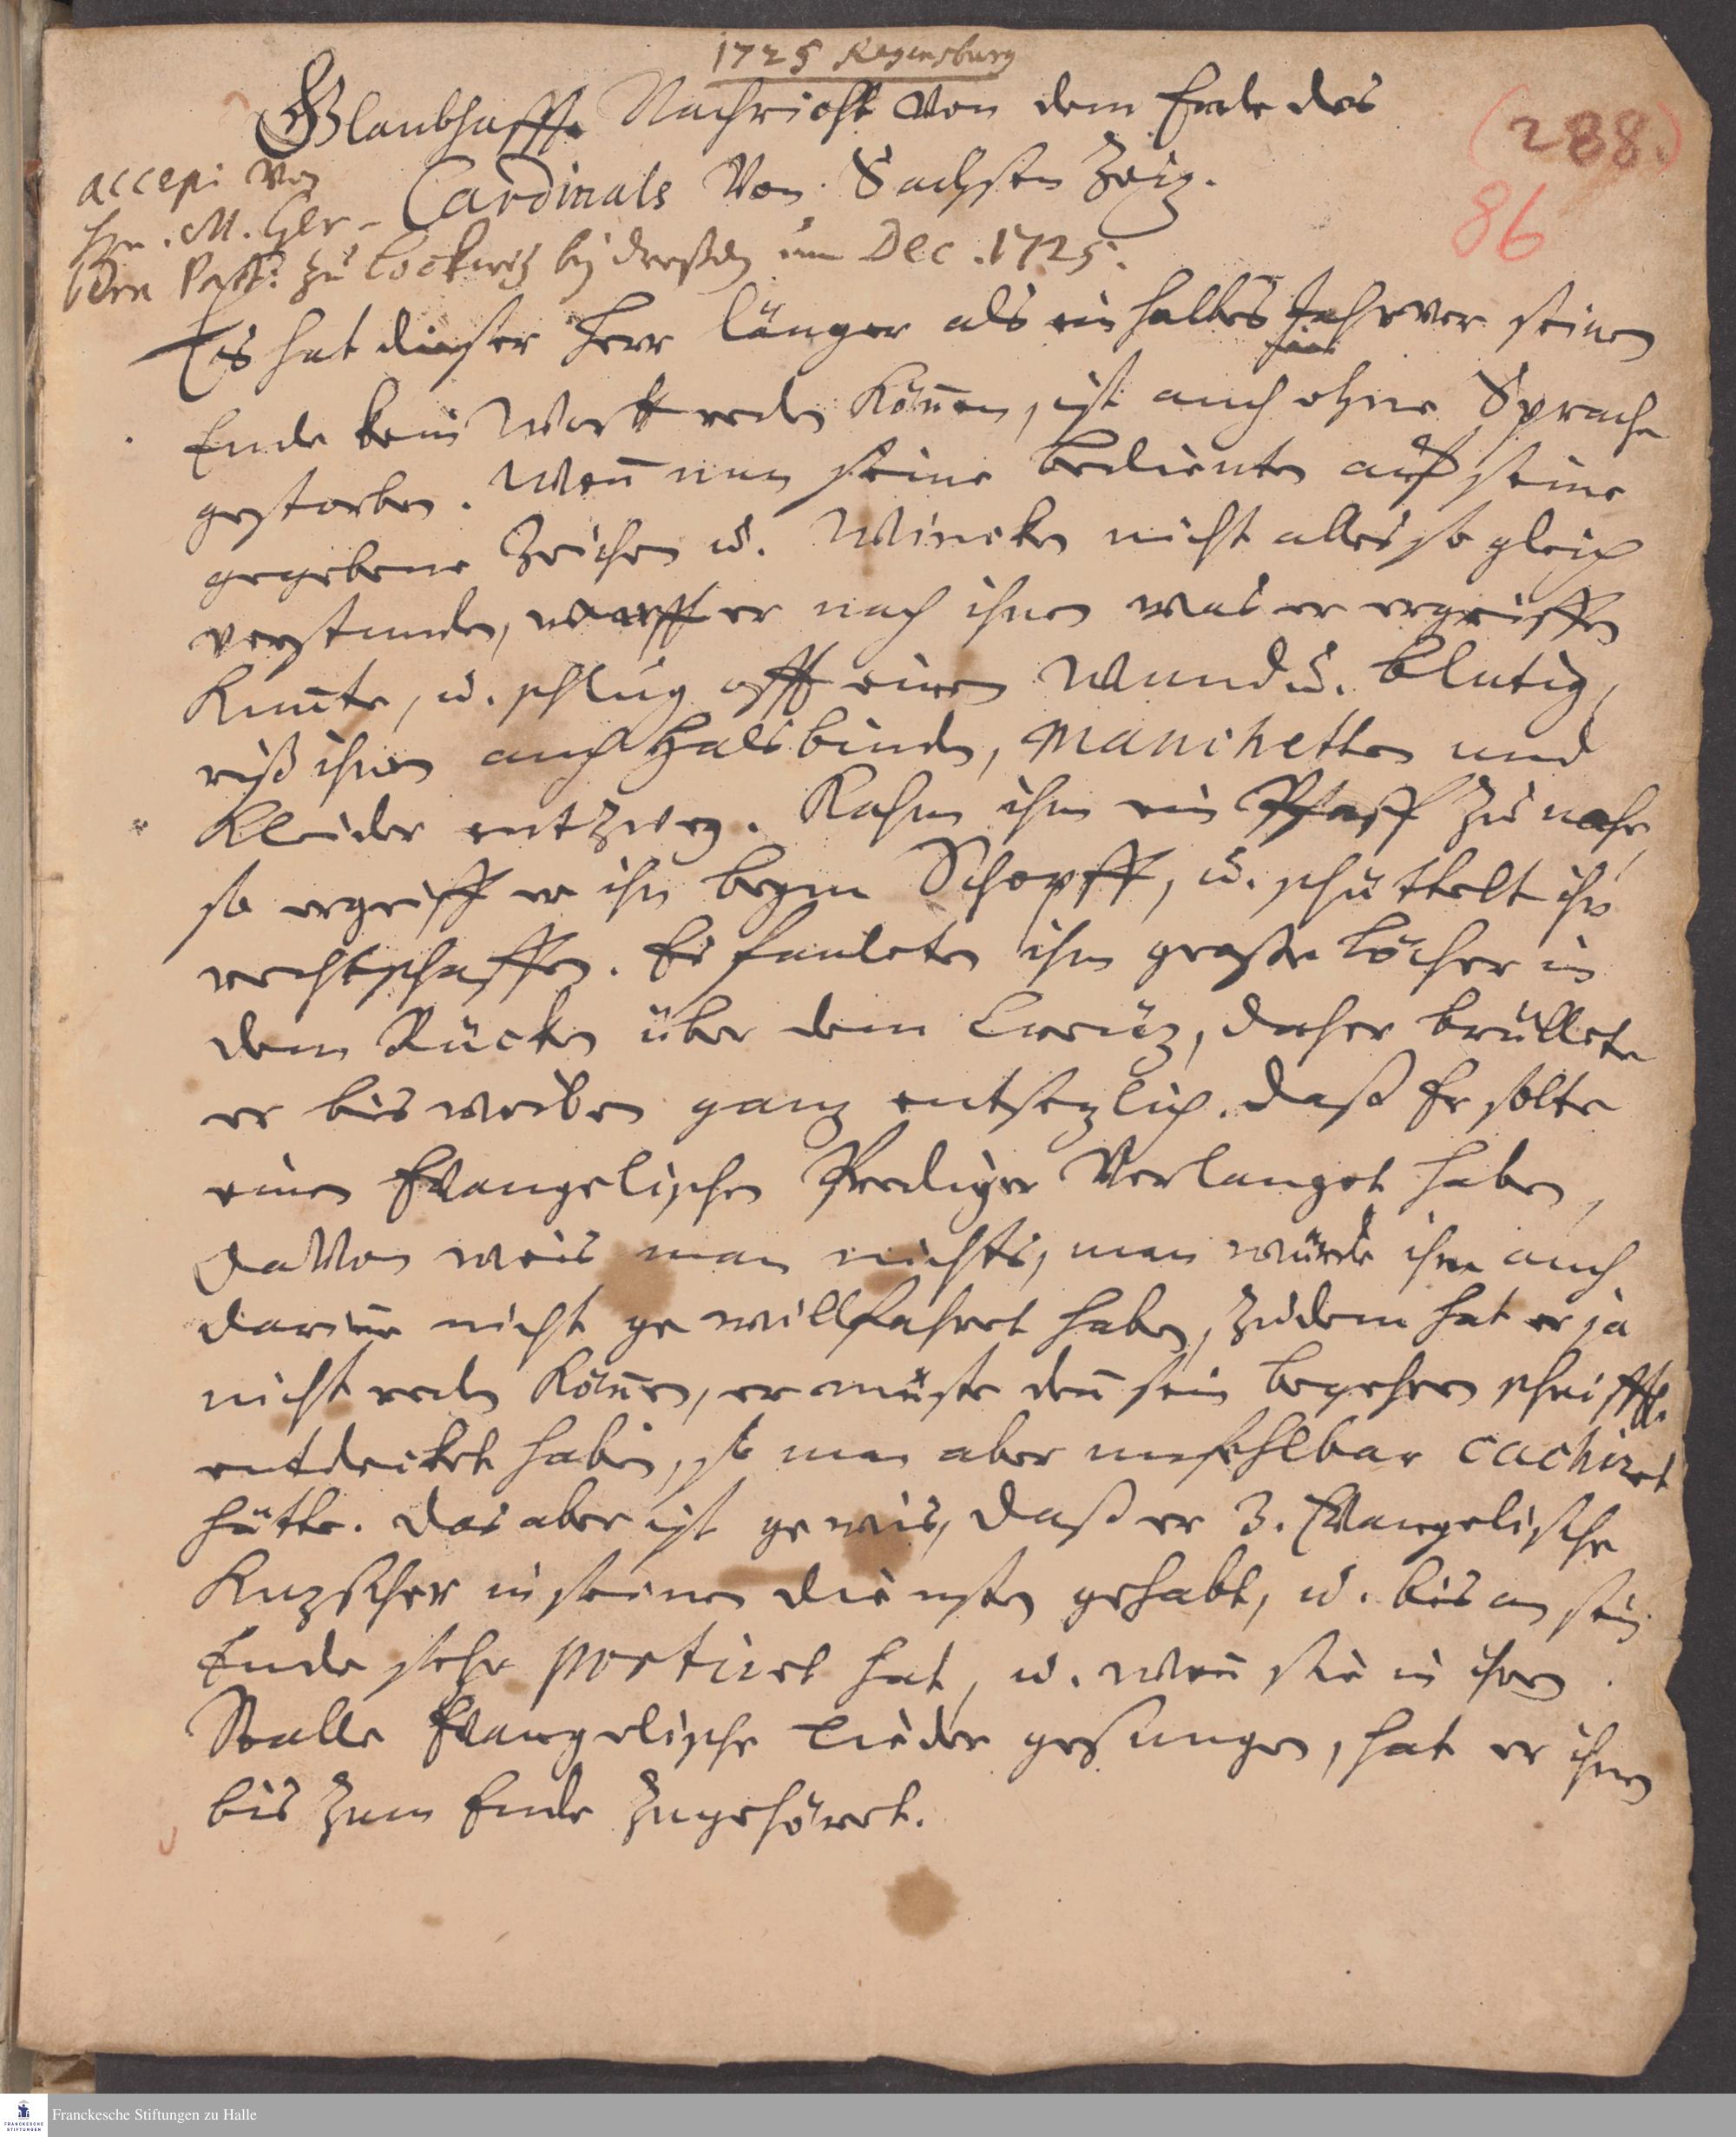 1725 Regensburg
Glaubhaffte Nachricht Von dem Ende des
Cardinals Von Sachsen Zeiz.
(288.)
86
accepi von
Hrn. M. Ger-
bern Past: zu Lockwiz bey Dreßden im Dec. 1725.
Es hat dieser Herr länger als ein halbes Jahr vor seinen
Ende kein Wortt reden können, ist auch ohne Sprache
gestorben. Wen̄ nun seine Bedienten auf seine
gegebene Zeichen u. Wincken nicht alles so gleich
verstunden, warff er nach ihnen was er ergreiffen
kunte, u. schlug offt einen Wund u. blutig,
riß ihnen auch Halsbinden, Manchetten und
Kleider entzwey. Kahm ihm ein Pfaff zu nahe,
so ergriff er ihn beym Schopff, u. schüttelt ihn
rechtschaffen. Es fauleten ihm große Löcher in
dem Rücken über dem Creuz, daher brüllete
er bisweilen ganz entsezlich. Daß Er solte
einen Evangelischen Prediger Verlanget haben,
davon weis man nichts, man würde ihm auch
darin̄e nicht gewillfahret haben, zudem hat er ja
nicht reden kön̄en, er müste den̄ sein begehren schrifftl.
entdecket haben, so man aber unfehlbar cachiret
hätte. Das aber ist gewis, daß er 3. Evangelische
Kuzscher in seinen Diensten gehabt, u. bis an sein
Ende sehr portiret hat, u. wen̄ sie in ihren
Stalle Evangelische Lieder gesungen, hat er ihnen
bis zum Ende zugehöret.
Franckesche Stiftungen zu Halle
FRANCKESCHE
STIFTUNGEN